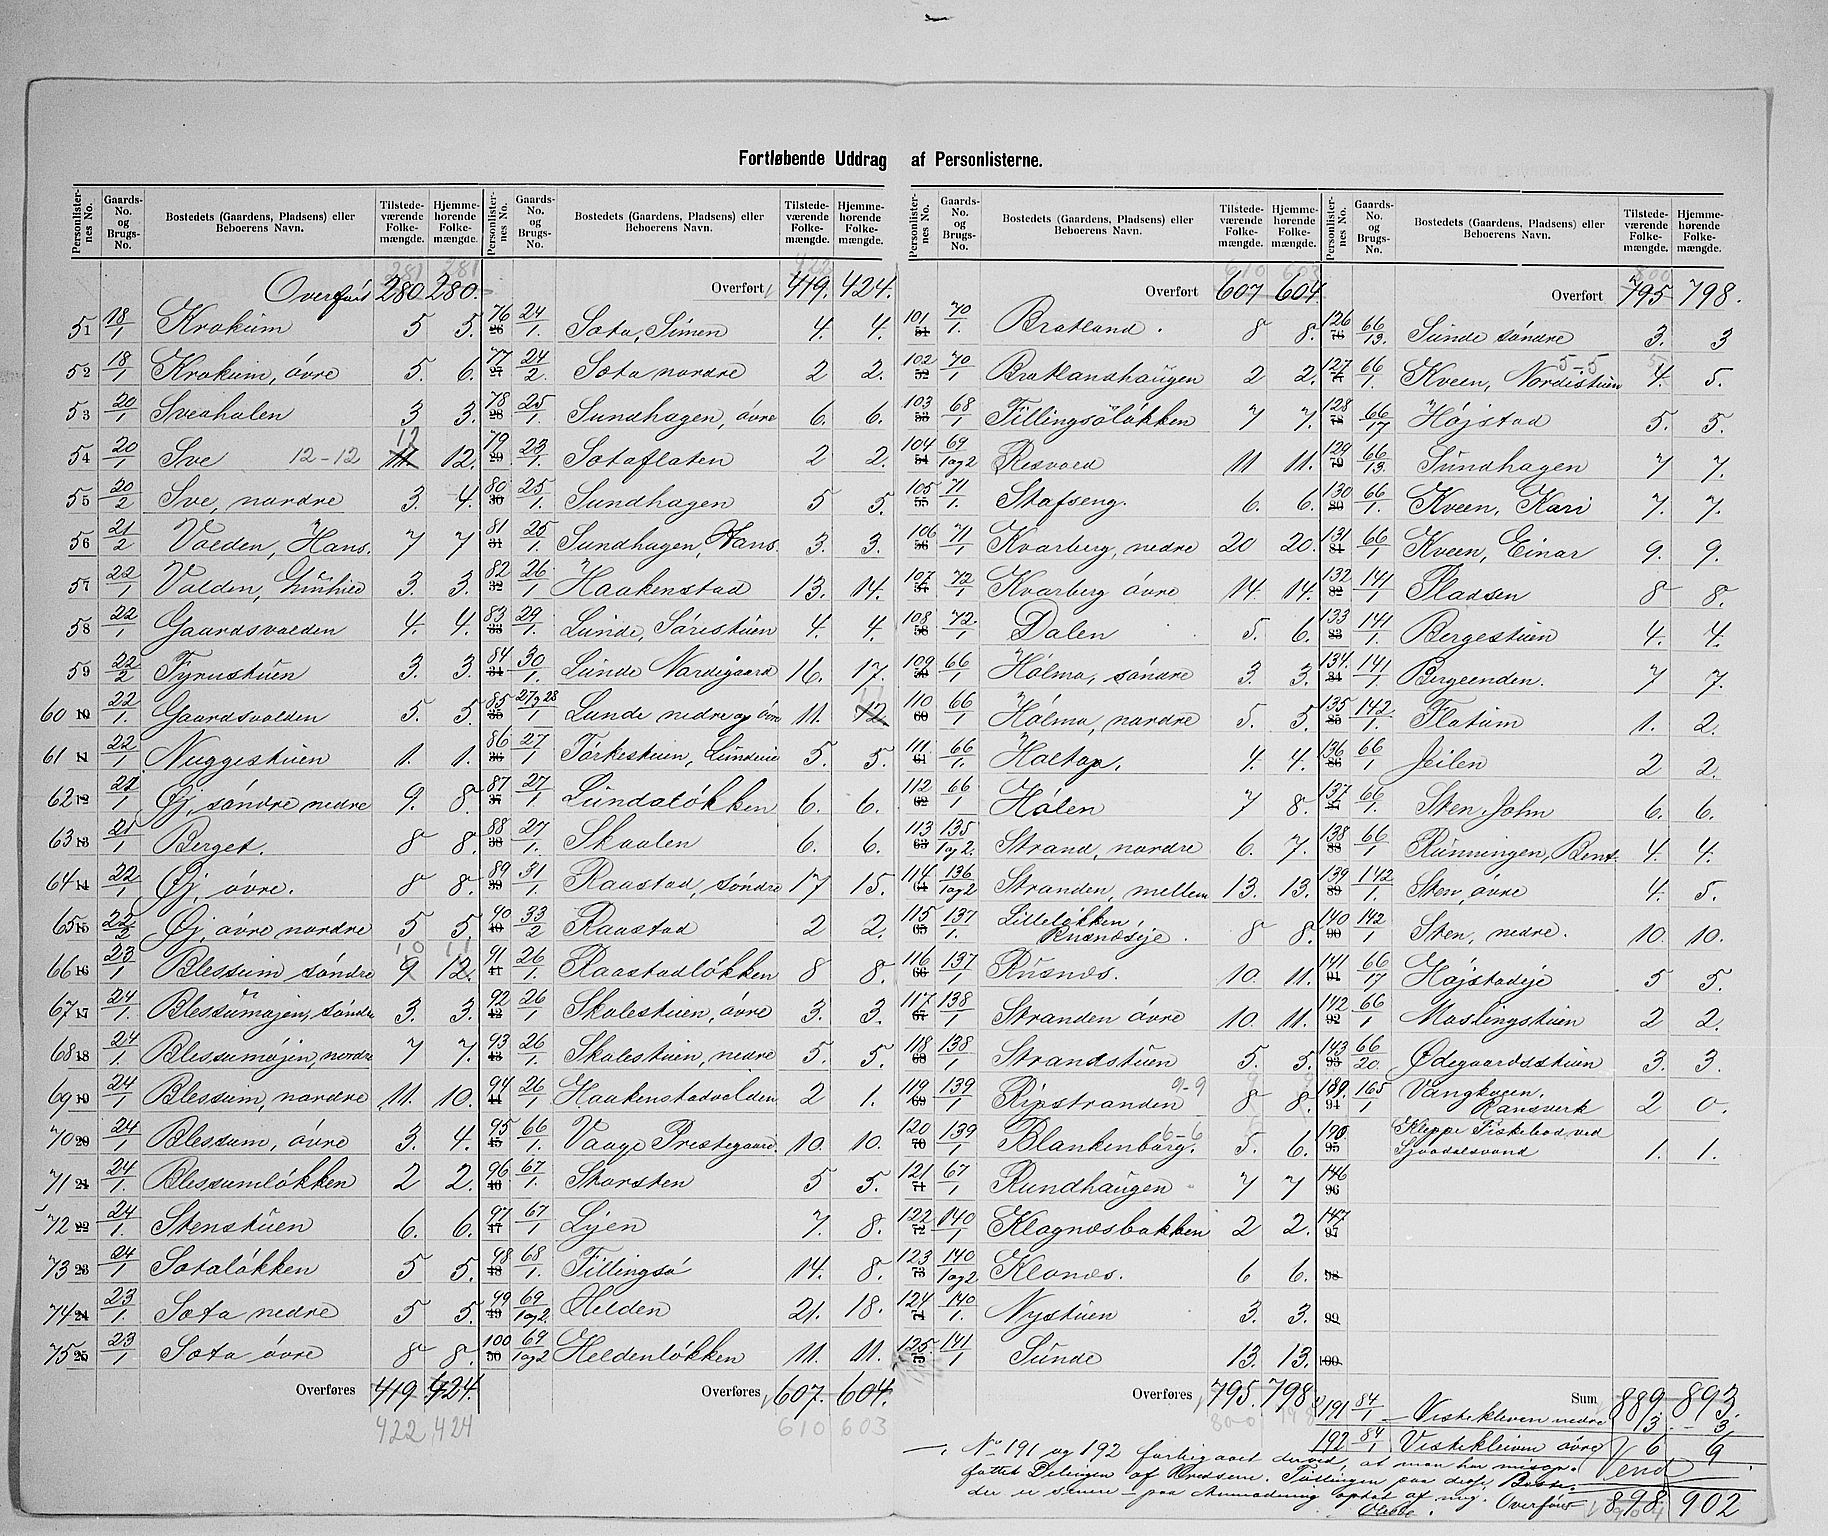 Fortløbende Uddrag af Personlisterne.
Personlisternes No. | Gaards-No. og Brugs-No. | Bostedets (Gaardens, Pladsens) eller Beboerens Navn. | Tilstedeværende Folkemængde. | Hjemmehørende Folkemængde.
281 281
Overført 280 280.
51 18/1 Krokum 5 5.
52 18/1 Krokum, övre 5. 6.
53 20/1 Sveahalen 3 3.
54 20/1 Sve 12-12 12 11 12.
55 20/2 Sve, nordre 3. 4.
56 21/2 Volden, Hans. 7 7
57 22/1 Volden, 3. 3.
58 22/1 Gaardsvolden 4. 4.
59 22/2 Fyrustuen 3. 3.
60 10 22/1. Gaardsvolden 5. 5.
61 11 22/1 Nuggestuen 1. 1.
62 12 /1 Øj, söndre nedre 9. 8.
63 13 21/1 Berget. 8 8.
64 14 22/1 Øj, övre. 8 8.
65 15 22/2 Øj, övre nordre 5 5
10 11
66 16 23/1 Blessum söndre 9 12.
67 17 24/1. Blessumöjen, söndre 3. 3.
68 18 24/1. Blessumöjen, nordre 7 7.
69 19 24/1 Blessum, nordre 11. 10.
70 20 24/1 Blessum, övre 3. 4.
71 21 24/1. Blessumlökken 2 2.
72 22 24/1. Stenstuen 6. 6.
73 23 24/1 Sotalökken 5 5.
74 24 23/1 Sota nedre 5 5.
75 25 23/1 Sota övre 8 8.
Overføres 419 424.
422 424
422
Overført 419. 424.
76 26 24/1. Sota, Simen 4. 4.
77 27 24/2. Sota nordre 2 2.
78 28 25/1. Sundhagen, övre 6. 6.
79 29 23/1. Sotaflaten 2 2.
80 30 25/1. Sundhagen 5 5.
81 31 25/1. Sundhagen, Hans. 3. 3.
82 32 26/1. Haakenstad 13. 14.
83 33 29/1. Lunde, Söristuen 4. 4.
84 34 30/1. Lunde Nordigaard 16. 17.
85 35 27og28/1 Lunde nedre og övre 11. 11 12
86 36 27/1 Törkestuen, Lundeie 5. 5.
87 37 27/1 Lundalökken 6. 6.
88 38 27/1. Skaalen 6. 6.
89 39 31/1. Raastad, söndre 17 15.
90 40 33/2 Raastad 2 2.
91 41 26/1 Raastadlökken 8 8.
92 42 26/1 Skolestuen, övre 3. 3.
93 43 26/1 Skolestuen, nedre 5. 5.
94 44 26/1 Haakenstadvolden 2 1.
95 45 66/1. Vaage Prestegaard. 10. 10.
96 46 67/1. Storsten 5 5.
97 47 67/1 Lyen 7. 8.
98 48 68/1. Fillingsö 14. 8.
99 49 69/1og2. Helden 21. 18.
100 50 69/1og2 Heldenlökken 11. 11.
Overføres 607. 604.
610 603
610 603
Overført 607 604
101 51 70/1. Bratland. 8 8.
102 52 70/1 Bratlandhaugen 2 2.
103 53 68/1 Fillingsölökken 7 7.
104 54 69/1og2 Resvord 11 11.
105 55 71/1. Stafseng. 6. 6.
106 56 71/1 Kvarberg, nedre 20 20.
107 57 72/1 Kvarberg övre 14. 14.
108 58 72./1 Dalen 5. 6.
109 59 66/1 Hölmo, söndre 3 3.
110 60 66/1 Hölmo, nordre 5. 5
111. 61 66/1. Holtop. 4. 4.
112 62 66/1 Hölen 7 8.
113 63 135/1og2. Strand, nordre 6. 7.
114 64 136/1og2 Stranden, mellem 13. 13.
115 65 137/1. Lillelökken, Rusnæseje. 8 8.
116 66 137/1 Rusnæs. 10. 11.
117 67 138/1 Stranden övre 10. 11.
118 68 138/1 Strandstuen 5. 5.
119 69 139/1 Ripstranden 9-9 8 8.
120 70 139/1 Blankenborg. 6-6 5. 6.
121 71 67/1 Rundhaugen 7 7
122 72 140/1 Klognæsbakken 2 2.
123 73 140/1og2 Klonæs. 6 6.
124 74 140/1. Nystuen 3. 3.
125. 75 141/1 Sunde 13. 13.
Overføres 795. 798
800 798
800
Overført 795 798.
126 76 66/13. Sunde söndre 3. 3
127 77 66/1. Kveen, Nordistuen 5-5 4. 5.
128 78 66/17 Höjstad 5. 5.
129 79 66/13. Sundhagen 7 7.
130 80 66/1. Kveen, Kari 7. 7.
131 81 66/1 Kveen, Einar 9. 9.
132 82 141/1 Pladsen 8 8.
133 83 141/1. Bergestuen 4. 4.
134. 84 141/1 Bergeenden. 7 7.
135 85 142/1. Flatum 1. 2.
136 86 66/1 Jeilen 2 2.
137 87 66/1. Sten, John 6. 6.
138 88 66/1 Runningen, Bent. 4. 4.
139 89 142/1. Sten, övre 4. 5.
140 90 142/1 Sten, nedre. 10. 10.
141 91 66/17 Höjstadeje 5 5.
142 92 66/1 Maslingstuen 2 2.
143 93 66/20. Ødegaardsstuen 3. 3.
189. 94 165/1 Vangkveen, Ransverk 2 0.
190. 95 Kleppe Fiskebod ved Sjoadalsvand 1. 1.
146 96
147 97
98
99
100
Sum 889. 893.
191 84/1 Vistekleven nedre 3. 3.
192 84/1 Vistekleiven övre 6 9.
Vend
No 191 og 192 forbigaaet derved, at man har misop-
fattet Delingen af Kredsene. Tællingen paa disse Boste-
der er senere paa Anmodning optat af mig. Overføres 898 902
904